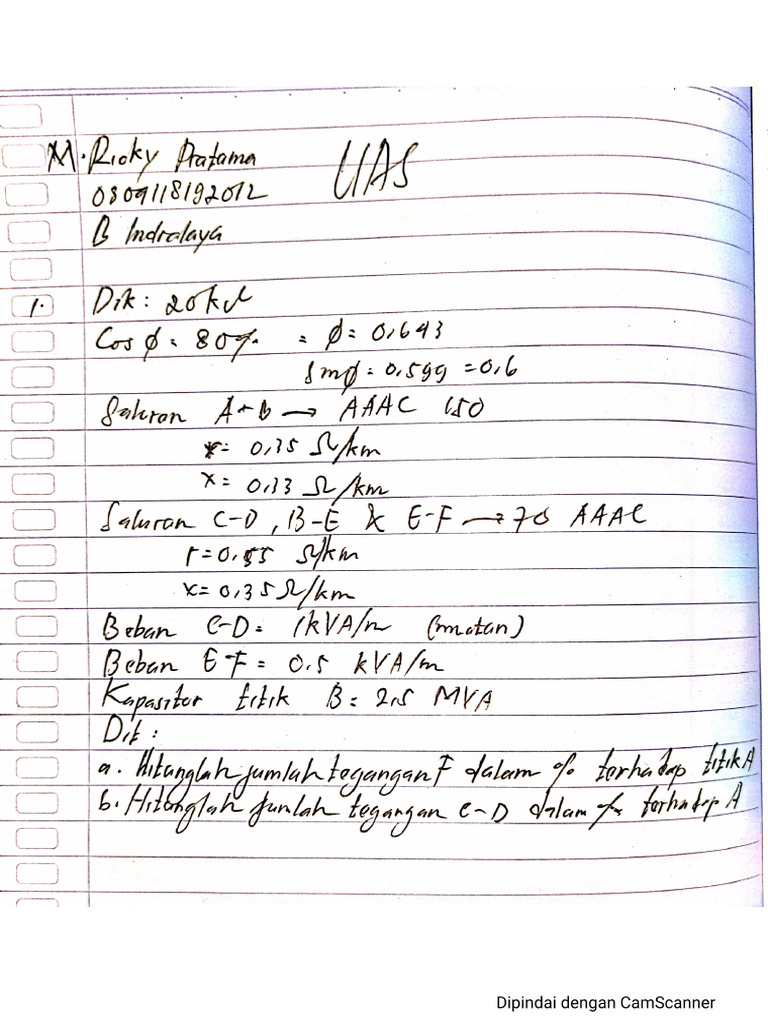 M. Ricky Pratama
UAS
0309118192012
B Indralaya
1. Dik : 20 kV
Cos φ = 80% = φ = 0,643
Sin φ = 0,599 = 0,6
Saluran A-B → AAAC 150
r = 0,25 Ω/km
x = 0,33 Ω/km
Saluran C-D, B-E & E-F → 70 AAAC
r = 0,55 Ω/km
x = 0,35 Ω/km
Beban C-D = 1 kVA/m
Beban E-F = 0.5 kVA/m
Kapasitor titik B = 2,5 MVA
Dit :
a. Hitunglah jumlah tegangan F dalam % terhadap titik A
b. Hitunglah jumlah tegangan C-D dalam % terhadap A
Dipindai dengan CamScanner